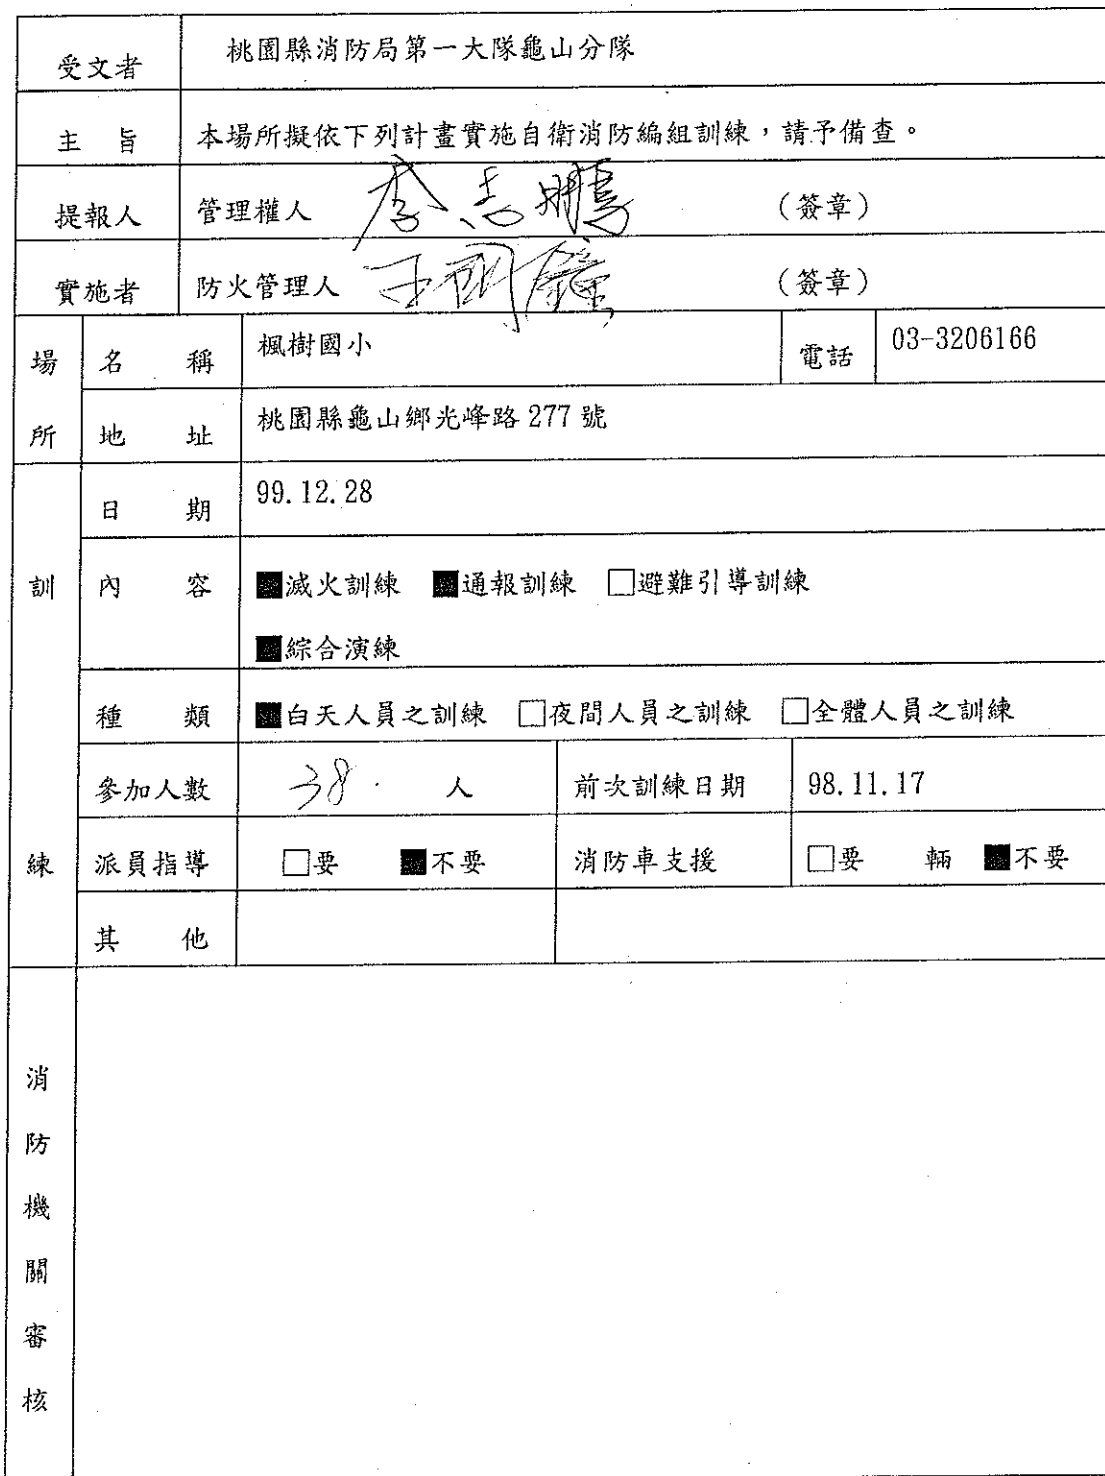 受文者 桃園縣消防局第一大隊龜山分隊
主 旨 本場所擬依下列計畫實施自衛消防編組訓練，請予備查。
提報人 管理權人 李志鵬 (簽章)
實施者 防火管理人 王明鐘 (簽章)
場所 名 稱 楓樹國小 電話 03-3206166
地 址 桃園縣龜山鄉光峰路 277 號
訓練 日 期 99.12.28
內 容 ■滅火訓練 ■通報訓練 □避難引導訓練
■綜合演練
種 類 ■白天人員之訓練 □夜間人員之訓練 □全體人員之訓練
參加人數 38. 人 前次訓練日期 98.11.17
派員指導 □要 ■不要 消防車支援 □要 輛 ■不要
其 他
消防機關審核